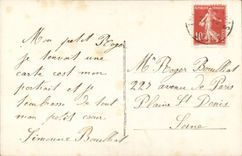 Mon petit Roger
je t'envoi une
carte c'est mon
portrait et je
t'embrasse de tout
mon petit cœur
Simonne Bouillat
Mr Roger Bouillat
227 avenue de Paris
Plaine St Denis
Seine
10